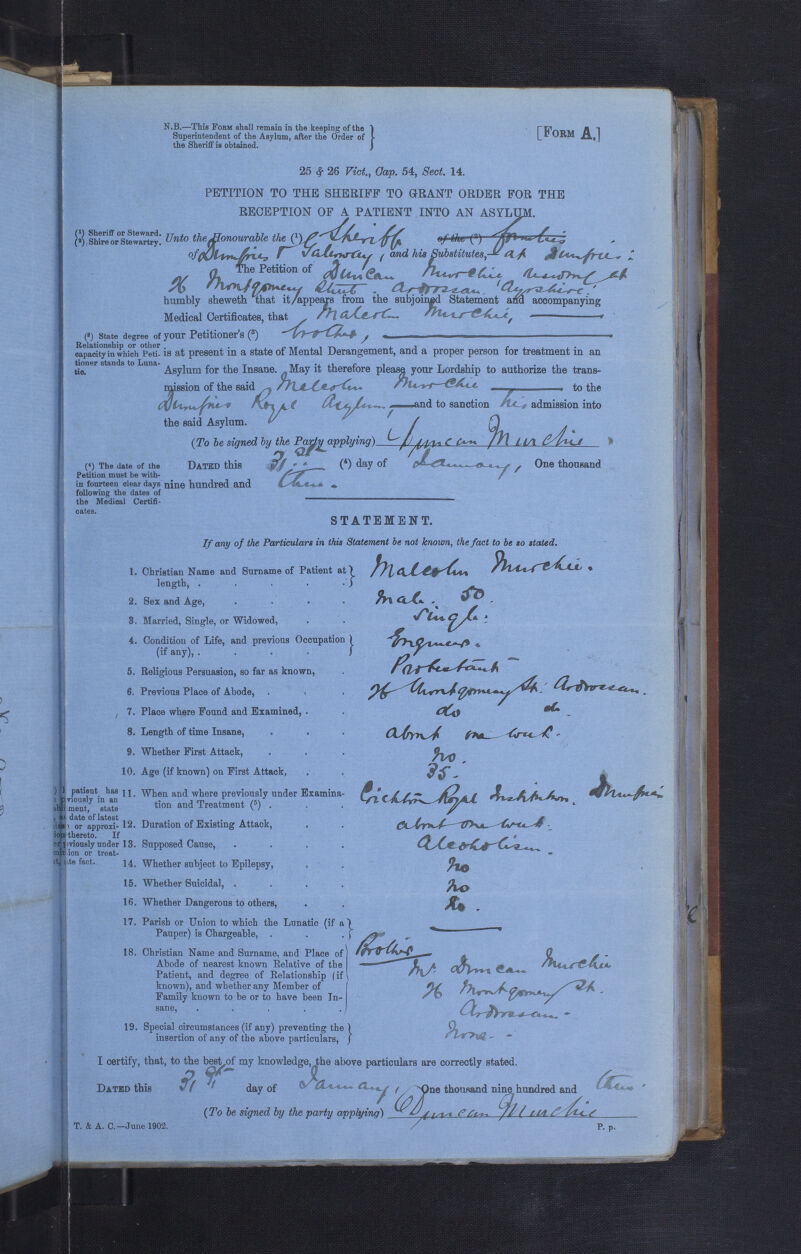 N.B.—This Form shall remain in the keeping of the
Superintendent of the Asylum, after the Order of
the Sheriff is obtained.
[Form A.]
25 & 26 Vict., Cap. 54, Sect. 14.
PETITION TO THE SHERIFF TO GRANT ORDER FOR THE
RECEPTION OF A PATIENT INTO AN ASYLUM.
(1) Sheriff or Steward.
(2) Shire or Stewartry.
Unto the Honourable the (1) Sheriff of the (2)
of Dumfries & Galloway, and his Substitutes, at Dumfries:
The Petition of Duncan Murchie residing at
26 Montgomery Street. Ardrossan. Ayrshire.
humbly sheweth that it appears from the subjoined Statement and accompanying
Medical Certificates, that Malcolm Murchie,
(3) State degree of
Relationship or other
capacity in which Peti-
tioner stands to Luna-
tic.
your Petitioner's (3) brother,
is at present in a state of Mental Derangement, and a proper person for treatment in an
Asylum for the Insane. May it therefore please your Lordship to authorize the trans-
mission of the said Malcolm Murchie to the
Dumfries Royal Asylum, and to sanction his admission into
the said Asylum.
(To be signed by the Party applying) Duncan Murchie
(4) The date of the
Petition must be with-
in fourteen clear days
following the dates of
the Medical Certifi-
cates.
Dated this 31st (4) day of January, One thousand
nine hundred and three.
STATEMENT.
If any of the Particulars in this Statement be not known, the fact to be so stated.
1. Christian Name and Surname of Patient at
length, . Malcolm Murchie.
2. Sex and Age, Male. 50.
3. Married, Single, or Widowed, Single.
4. Condition of Life, and previous Occupation
(if any), . Engineer.
5. Religious Persuasion, so far as known, Protestant
6. Previous Place of Abode, . 26 Montgomery St. Ardrossan.
7. Place where Found and Examined, . do do
8. Length of time Insane, About one week.
9. Whether First Attack, No.
10. Age (if known) on First Attack, 35.
patient has
viously in an
ment, state
date of latest
or approxi-
thereto. If
viously under
ion or treat-
te fact.
11. When and where previously under Examina-
tion and Treatment (5) . Crichton Royal Institution. Dumfries
12. Duration of Existing Attack, about one week.
13. Supposed Cause, Alcoholism.
14. Whether subject to Epilepsy, No
15. Whether Suicidal, . No
16. Whether Dangerous to others, No.
17. Parish or Union to which the Lunatic (if a
Pauper) is Chargeable, .
18. Christian Name and Surname, and Place of
Abode of nearest known Relative of the
Patient, and degree of Relationship (if
known), and whether any Member of
Family known to be or to have been In-
sane, .
Brother
Mr Duncan Murchie
26 Montgomery St.
Ardrossan.
19. Special circumstances (if any) preventing the
insertion of any of the above particulars, None.
I certify, that, to the best of my knowledge, the above particulars are correctly stated.
Dated this 31st day of January, One thousand nine hundred and three.
(To be signed by the party applying) Duncan Murchie
T. & A. C.—June 1902.
P. p.